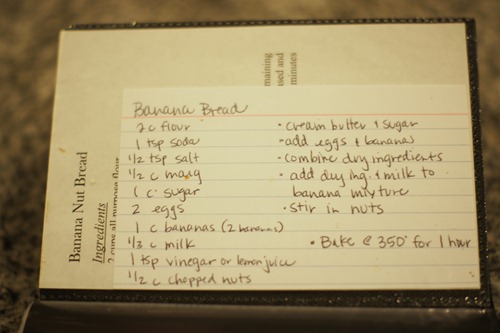 Banana Bread
2 c flour
1 tsp soda
1/2 tsp salt
1/2 c marg
1 c sugar
2 eggs
1 c bananas (2 bananas)
1/3 c milk
1 tsp vinegar or lemon juice
1/2 c chopped nuts
• cream butter & sugar
• add eggs & bananas
• combine dry ingredients
• add dry ing. & milk to
banana mixture
• stir in nuts
• Bake @ 350° for 1 hour
Banana Nut Bread
Ingredients
2 cups all purpose flour
maining
used and
minutes